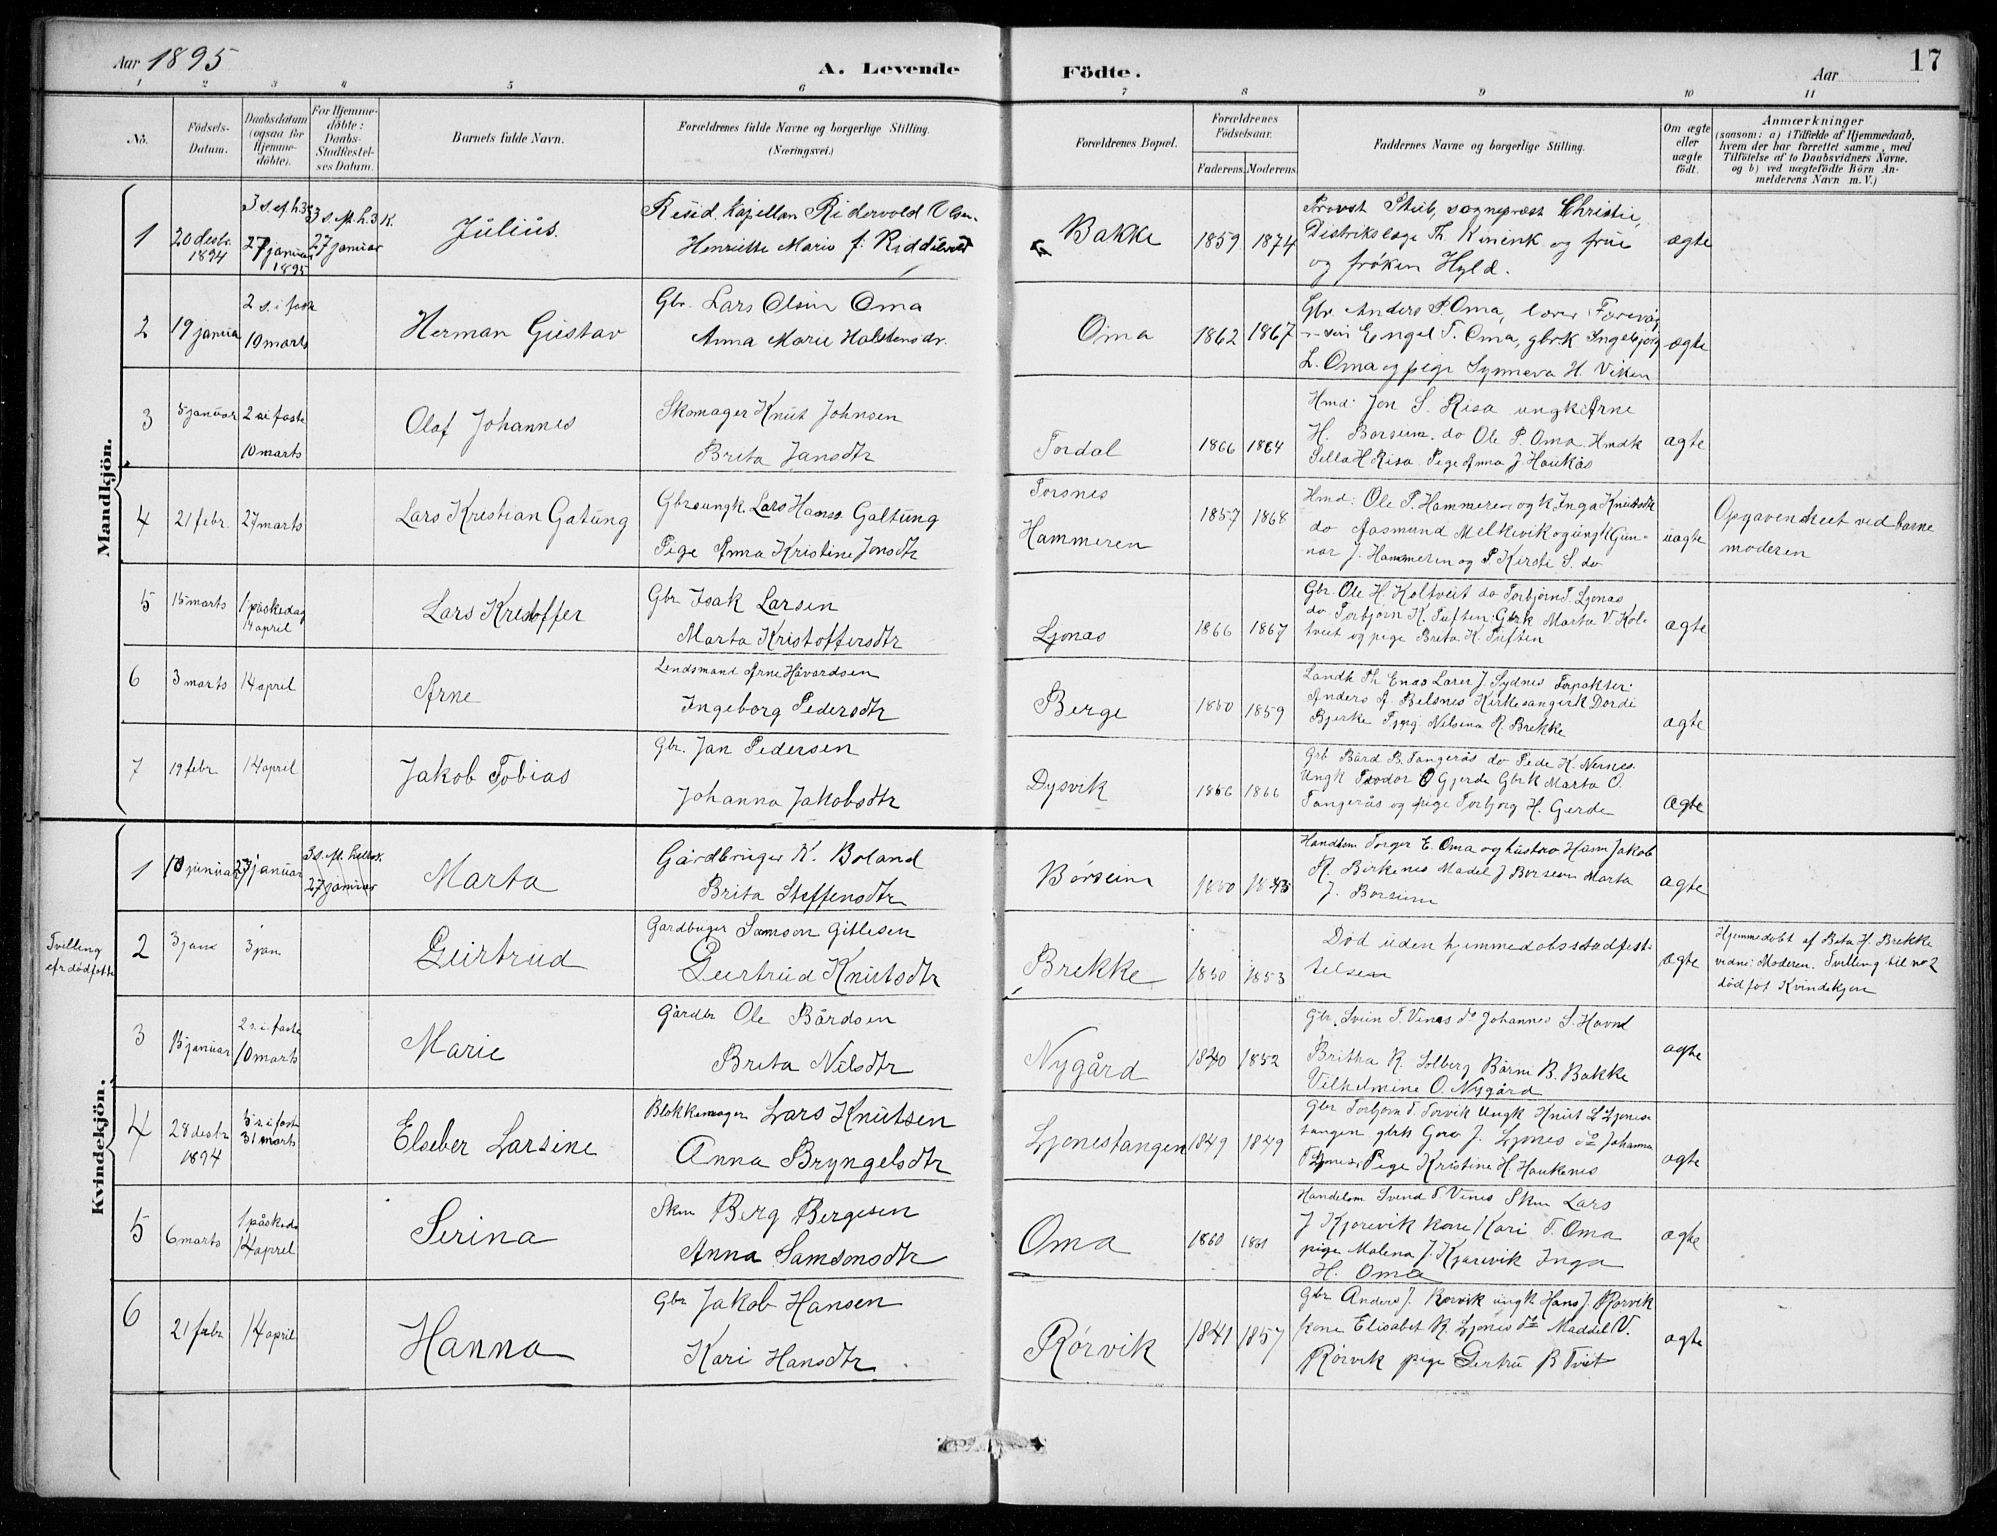 Aar 1895
A. Levende
Födte.
Aar
17
1 2 3 4 5 6 7 8 9 10 11
No.
Födsels-
Datum.
Daabsdatum
(ogsaa for
Hjemme-
döbte).
For Hjemme-
döbte:
Daabs-
Stadfæstel-
ses Datum.
Barnets fulde Navn.
Forældrenes fulde Navne og borgerlige Stilling.
(Næringsvei.)
Forældrenes Bopæl.
Forældrenes
Födselsaar.
Faderens. Moderens.
Faddernes Navne og borgerlige Stilling.
Om ægte
eller
uægte
födt.
Anmærkninger
(saasom: a) i Tilfælde af Hjemmedaab,
hvem der har forrettet samme, med
Tilföielse af to Daabsvidners Navne.
og b) ved uægtefödte Börn An-
melderens Navn m. V.)
Mandkjön.
1
20 desbr.
1894
27 januar
1895
27 januar
Julius.
Resid. Kapellan
Henriette Marie f.
Bakke
1859 1874
Provst sognepræst Christie,
Distrikslæge Th. og frue
og frøken Hyld.
ægte
2
19 januar
2 s. i faste
10 marts
Herman Gustav
Gbr. Lars Olsen Oma
Anna Marie Halstensdr.
Oma
1862 1867
Gbr Anders P. Oma, lærer
Engel T. Oma, gbrk Ingebjorg
L. Oma og pige Synneva H. Viken
ægte
3
5 januar
2 s i faste
10 marts
Olaf Johannes
Skomager Knut Johnsen
Brita Jansdtr
Tordal
1866 1864
Hmd: Jon S. Risa ungk Arne
H. Borseim. do Ole P. Oma Hmdk
Sella H Risa. Pige Anna J Haukås
ægte
4
21 febr.
27 marts
Lars Kristian Gatung
Gbrs ungk. Lars Hanss. Galtung
Pige Anna Kristine Jonsdtr
Torsnes
Hammeren
1857 1868
Hmd: Ole P. Hammeren og k Inga Knutsdtr
do Aasmund Melkevik og ungk Gun-
nar J. Hammeren og P Kirsti S. do
uægte
Opgaven skeet ved barne
moderen
5
15 marts
1 påskedag
14 april
Lars Kristoffer
Gbr Isak Larsen
Marta Kristoffersdtr
Ljonas
1866 1867
Gbr. Ole H. Koltveit do Torbjörn T. Ljonas
do. Torbjorn K. Tuften. Gbrk Marta V Kol-
tveit og pige Brita K. Tuften
ægte
6
3 marts
14 april
Arne
Lendsmand Arne Håvardsen
Ingeborg Pedersdtr
Berge
1850 1859
Landh Th Enas Lærer J Sydnes
Anders A. Belsnes Kirkesangerk Dordi
Bjerke Nilsina R. Brekke
ægte
7
19 febr
14 april
Jakob Tobias
Gbr. Jan Pedersen
Johanna Jakobsdtr
Dysvik
1866 1866
Grb Bård B. Tangerås do Pede K. Nernes.
Ungk Teodor O Gjerde Gbrk Marta O.
Tangerås og pige Torbjorg H. Gerde
ægte
Kvindekjön.
1
10 januar
27 januar
27 januar
Marta
Gårdbruger K. Boland
Brita Steffensdtr
Børseim
1850
Handlem Torger E. Oma og hustro Husm Jakob
R. Birkenes Madel J Borseim Marta
J. Borseim
ægte
Tvilling
efr dødfødte
2
3 jan
3 jan
Geirtrud
Gardbuger Samson Gitlesen
Geirtrud Knutsdtr
Brekke
1850 1853
Død uden hjemmedobsstadfest-
telsen
ægte
Hjemmedobt af Bata H. Brekke
vidne: Moderen. Tvilling til no 2
død fot Kvindekjon
3
15 januar
2 s. i faste
10 marts
Marie
Gårdbr Ole Bårdsen
Brita Nilsdtr
Nygård
1840 1852
Gbr. Svein T. Vines do Johannes S. Havnd
Britha R. Solberg Børni B. Bakke
Vilhelmine O. Nygård
ægte
4
28 desbr
1894
5 s i fast
31 marts
Elseber Larsine
Blokkemager Lars Knutsen
Anna Bryngelsdtr
Ljonestangen
1849 1849
Gbr Torbjorn T. Torvik Ungk Knut L Ljones
tangen gbrk Goro J. Ljones do Johanna
T Ljones. Pige Kristine H. Haukenes
ægte
5
6 marts
1 påskeda
14 april
Serina
Skm Berg Bergesen
Anna Samsonsdtr
Oma
1860 1861
Handelsm Svend T Vines Skm Lars
J Kjorevik kone Kari T. Oma
pige Malena J. Kjarevik Inga
H. Oma
ægte
6
21 febr
14 april
Hanna
Gbr Jakob Hansen
Kari Hansdtr
Rørvik
1841 1857
Gbr Anders J. Rorvik ungk Hans J Rorvik
kone Elisabet R. Ljones do Maddel V.
Rørvik pige Gertru B Tvit
ægte